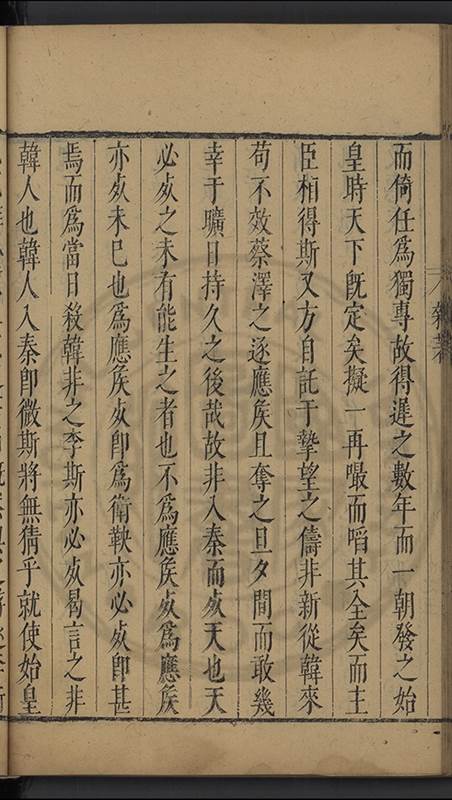 而倚任爲獨專故得遲之數年而一朝發之始
皇時天下旣定矣擬一再嘬而啗其全矣而主
臣相得斯又方自託于摯望之儔非新從韓來
苟不效蔡澤之逐應矦且奪之旦夕間而敢幾
幸于曠日持久之後哉故非入秦而歿天也天
必歿之未有能生之者也不爲應矦歿爲應矦
亦歿未巳也爲應矦歿卽爲衛鞅亦必歿卽甚
焉而爲當日殺韓非之李斯亦必歿曷言之非
韓人也韓人入秦卽微斯將無猜乎就使始皇